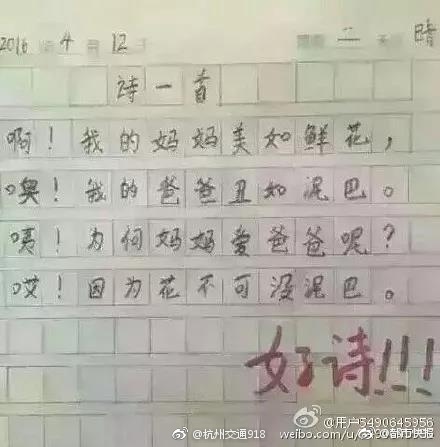 2016 年 4 月 12 日 星期 二 天气 晴
诗一首
啊！我的妈妈美如鲜花，
噢！我的爸爸丑如泥巴。
咦！为何妈妈爱爸爸呢？
哎！因为花不可没泥巴。
好诗!!!
@用户5490645956
@杭州交通918
weibo.com/u/
@都市快报